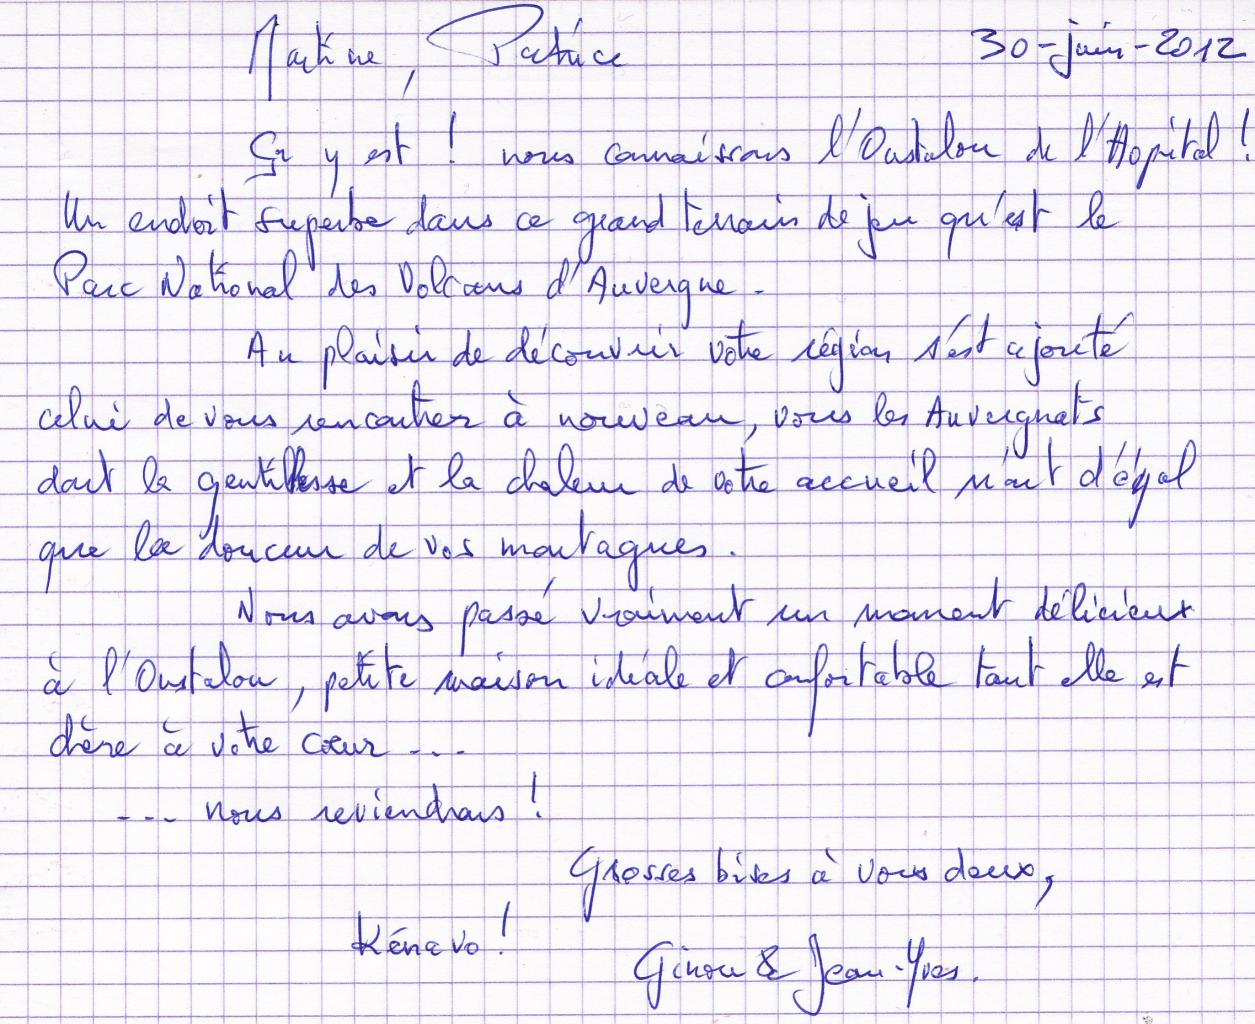 Martine, Patrice
30-juin-2012
Ça y est ! nous connaissons l'Oustalou de l'Hopital !
Un endroit superbe dans ce grand terrain de jeu qu'est le
Parc National des Volcans d'Auvergne.
Au plaisir de découvrir votre région s'est ajouté
celui de vous rencontrer à nouveau, vous les Auvergnats
dont la gentillesse et la chaleur de votre accueil n'ont d'égal
que la douceur de vos montagnes.
Nous avons passé vraiment un moment délicieux
à l'Oustalou, petite maison idéale et confortable tant elle est
chère à votre cœur ...
... nous reviendrons !
Grosses bises à vous deux,
Kénavo !
Ginou & Jean-Yves.